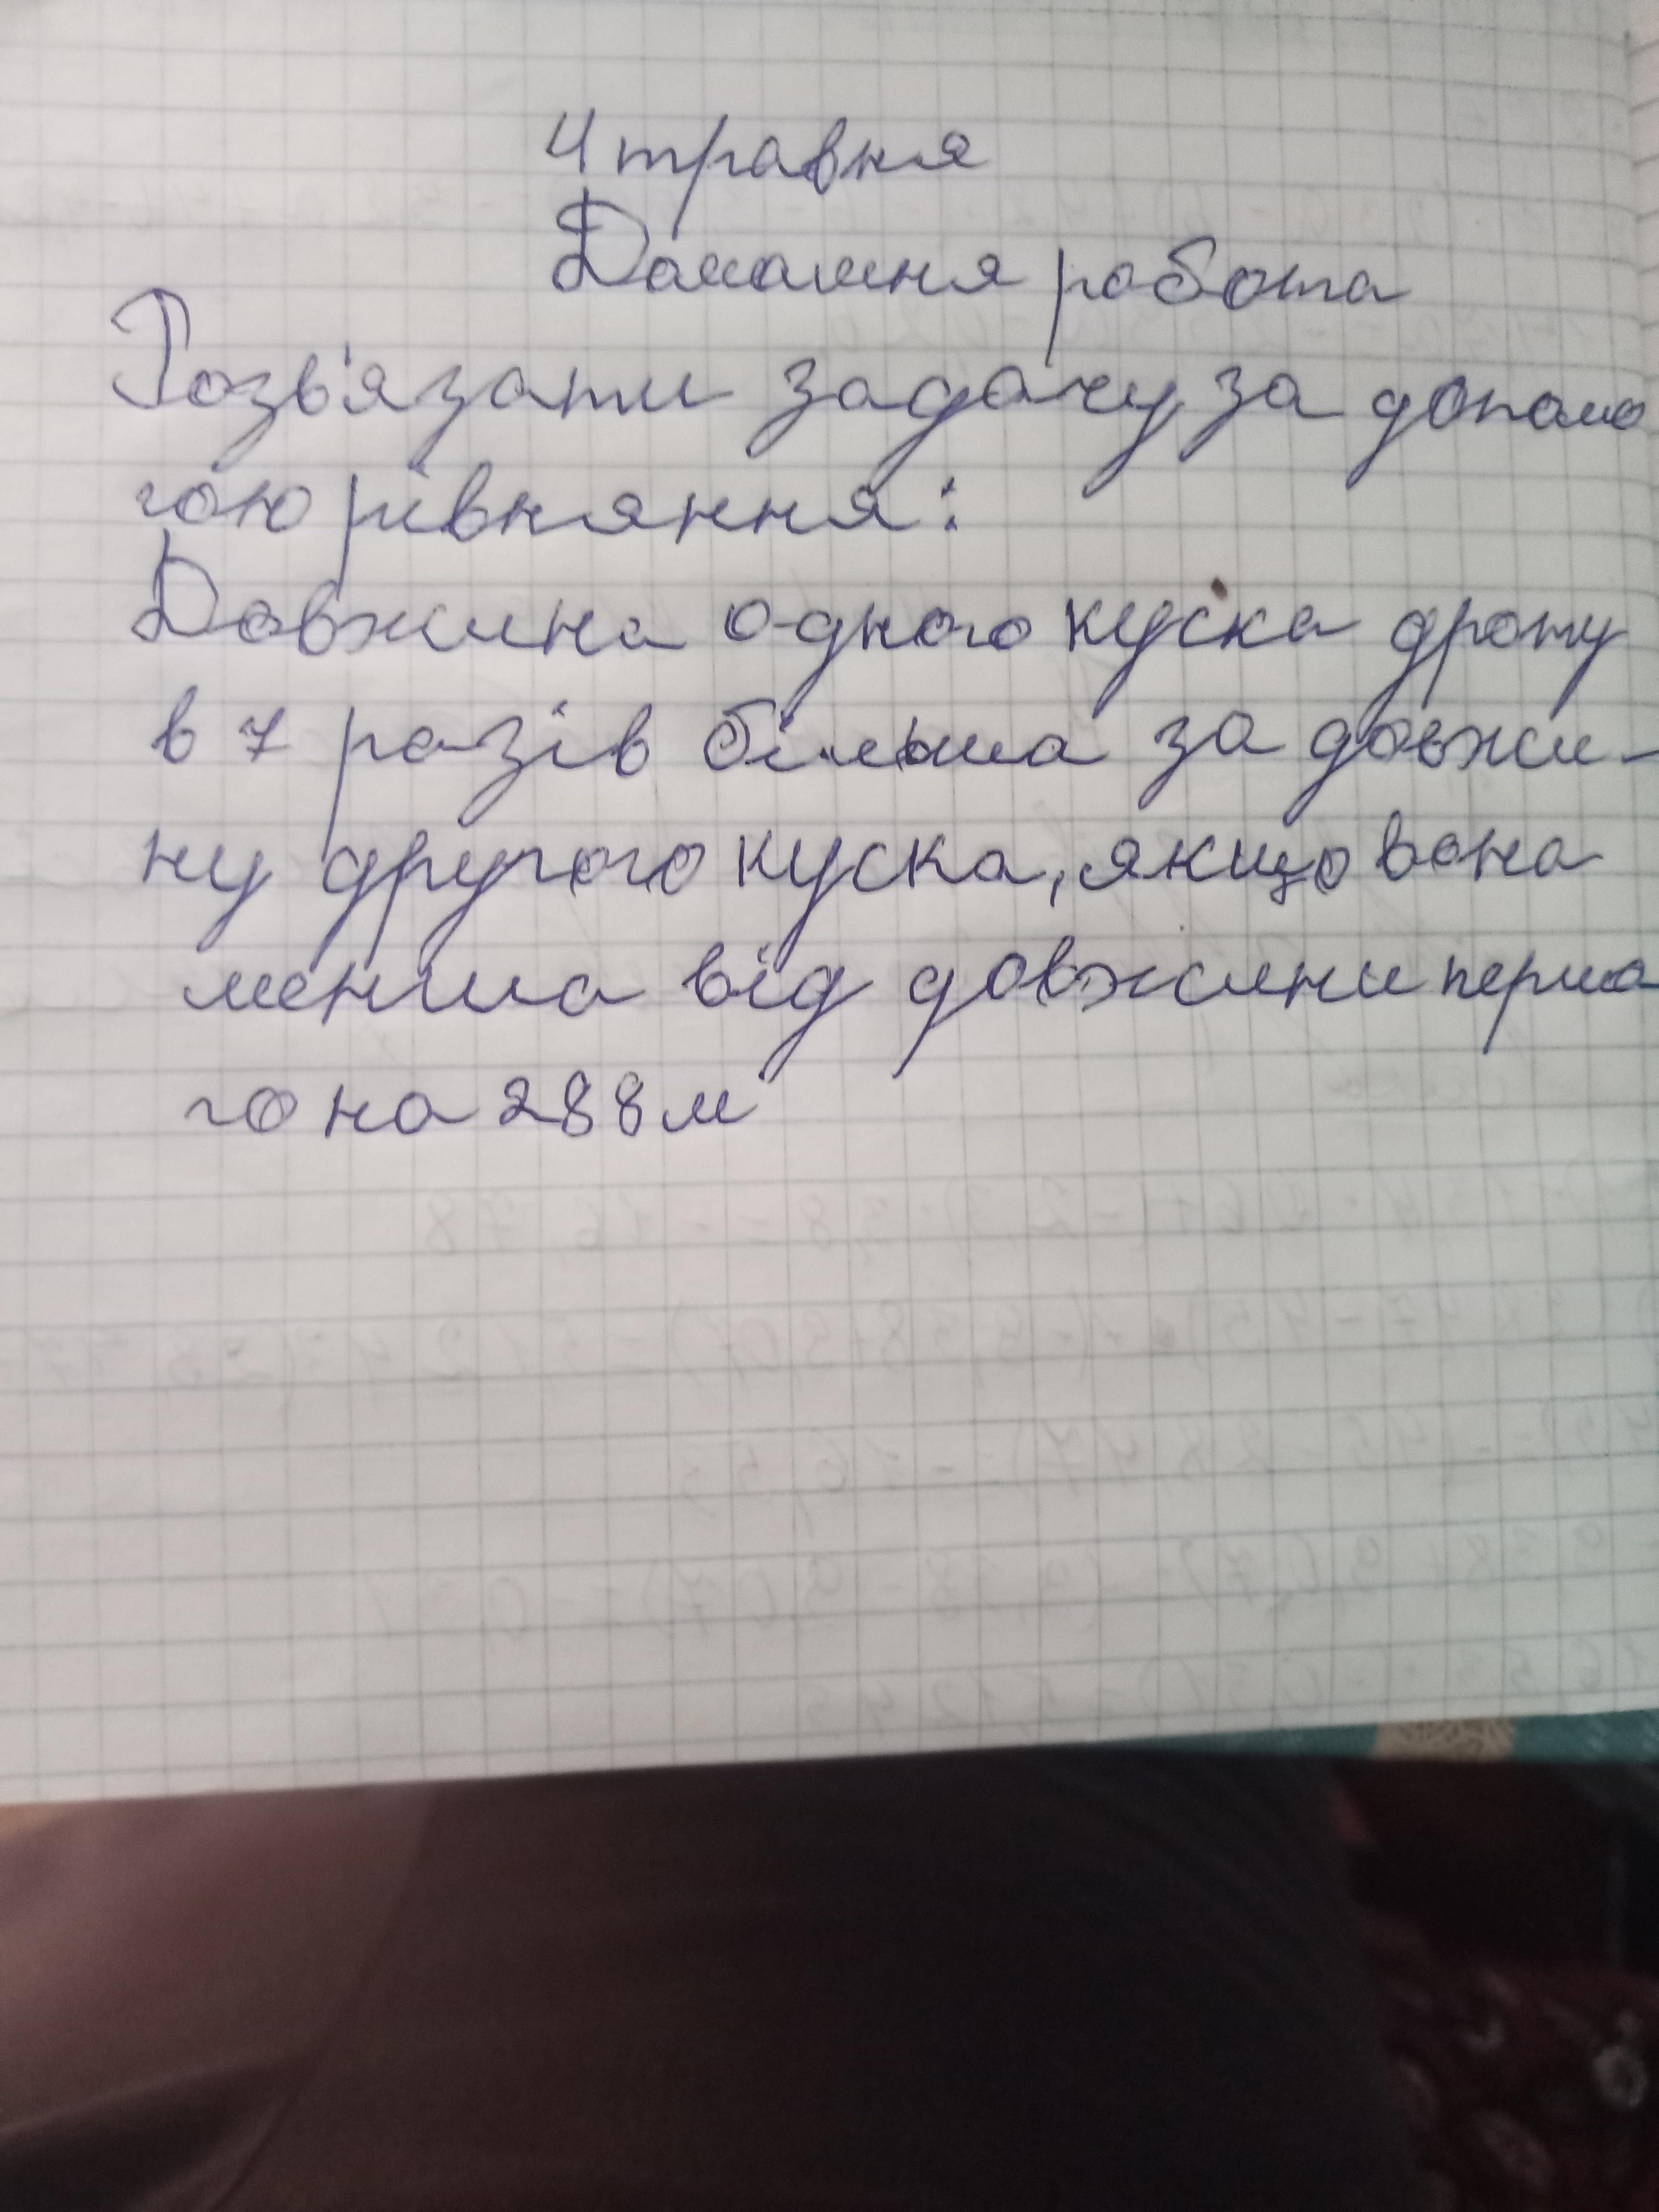 4 травня
Домашня робота
Розв'язати задачу за допомо
гою рівняння:
Довжина одного куска дроту
в 7 разів більша за довжи-
ну другого куска, якщо вона
менша від довжини першо
го на 288м